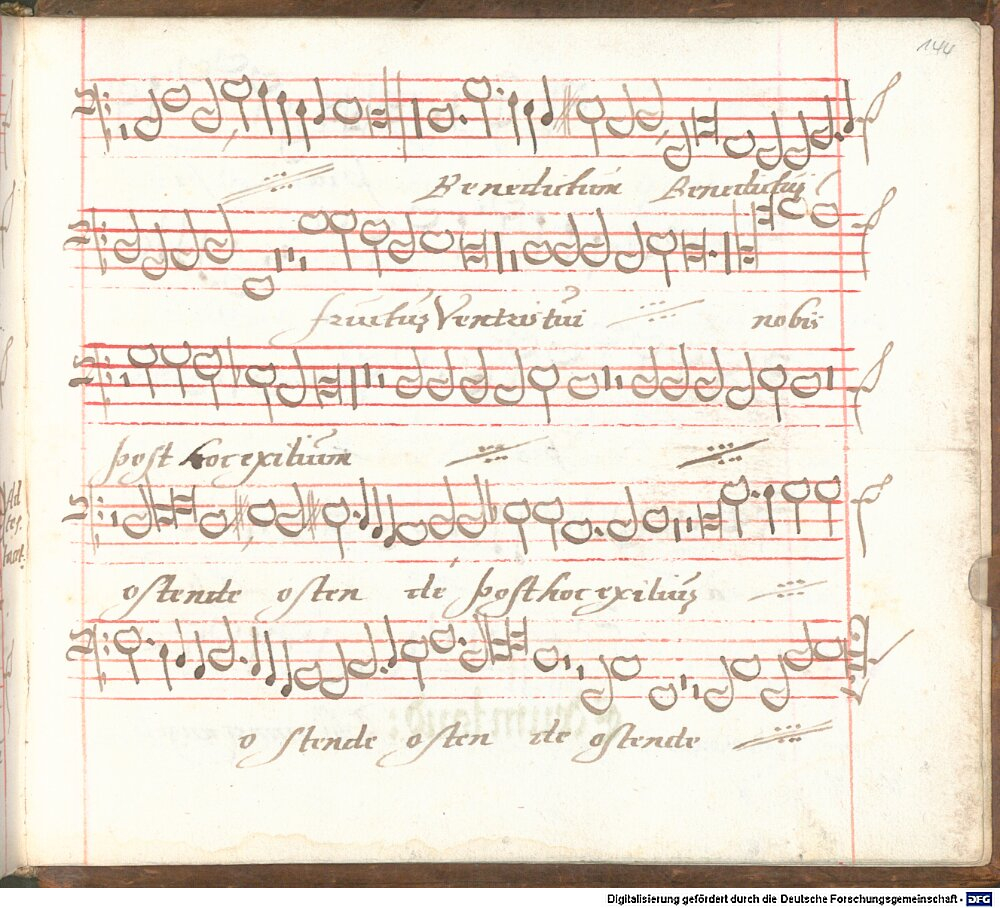 144
Benedictum Benedictus
fructus Ventris tui nobis
post hoc exilium
ostende osten de post hoc exilius
o stende osten de ostende
Digitalisierung gefördert durch die Deutsche Forschungsgemeinschaft - DFG